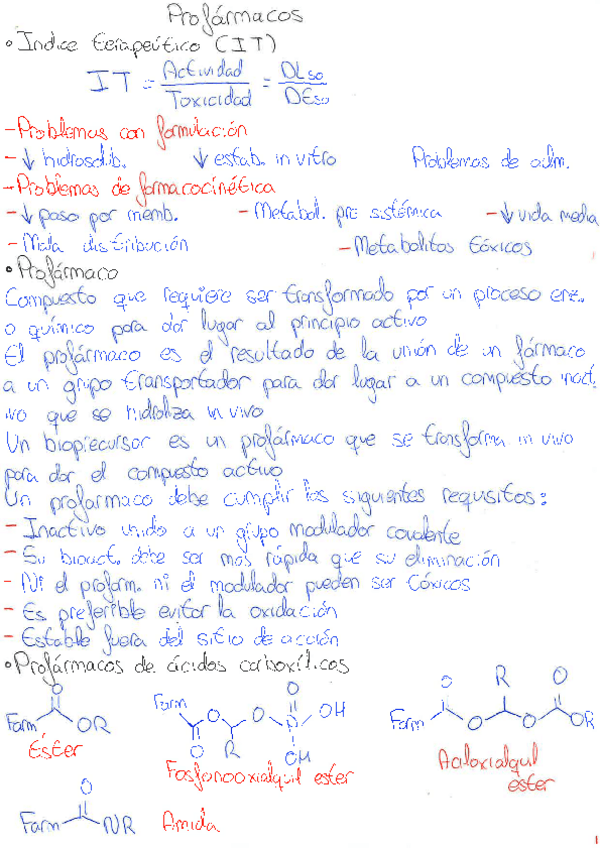 Profármacos
• Indice terapeútico (IT)
IT = Actividad / Toxicidad = DL50 / DE50
- Problemas con formulación
- ↓ hidrosolib. ↓ estab. in vitro Problemas de adm.
- Problemas de farmacocinética
- ↓ paso por memb. - Metabol. pre sistémica - ↓ vida media
- Mala distribución - Metabolitos tóxicos
• Profármaco
Compuesto que requiere ser transformado por un proceso enz.
o químico para dar lugar al principio activo
El profármaco es el resultado de la unión de un fármaco
a un grupo transportador para dar lugar a un compuesto inact
ivo que se hidroliza in vivo
Un bioprecursor es un profármaco que se transforma in vivo
para dar el compuesto activo
Un profarmaco debe cumplir los siguientes requisitos:
- Inactivo unido a un grupo modulador covalente
- Su bioact. debe ser más rápida que su eliminación
- Ni el profarm. ni el modulador pueden ser tóxicos
- Es preferible evitar la oxidación
- Estable fuera del sitio de acción
• Profármacos de ácidos carboxílicos
Farm O OR
Éster
Farm O O R O O P OH OH
Fosfonooxialquil ester
Farm O O R O O OR
Aciloxialquil
ester
Farm O NR Amida
1